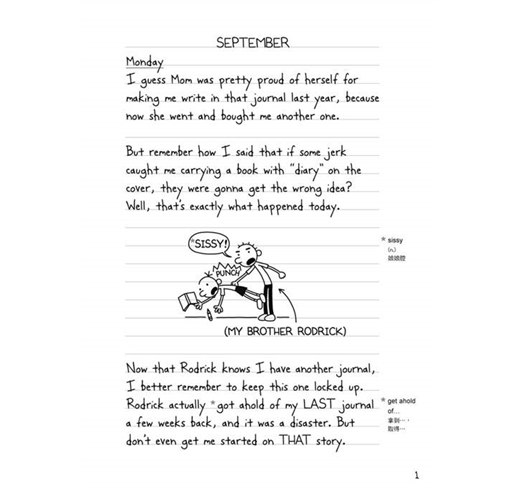 SEPTEMBER
Monday
I guess Mom was pretty proud of herself for
making me write in that journal last year, because
now she went and bought me another one.
But remember how I said that if some jerk
caught me carrying a book with "diary" on the
cover, they were gonna get the wrong idea?
Well, that's exactly what happened today.
*SISSY!
PUNCH
* sissy
(n.)
娘娘腔
(MY BROTHER RODRICK)
Now that Rodrick knows I have another journal,
I better remember to keep this one locked up.
Rodrick actually *got ahold of my LAST journal
a few weeks back, and it was a disaster. But
don't even get me started on THAT story.
* get ahold
of…
拿到…，
取得…
1